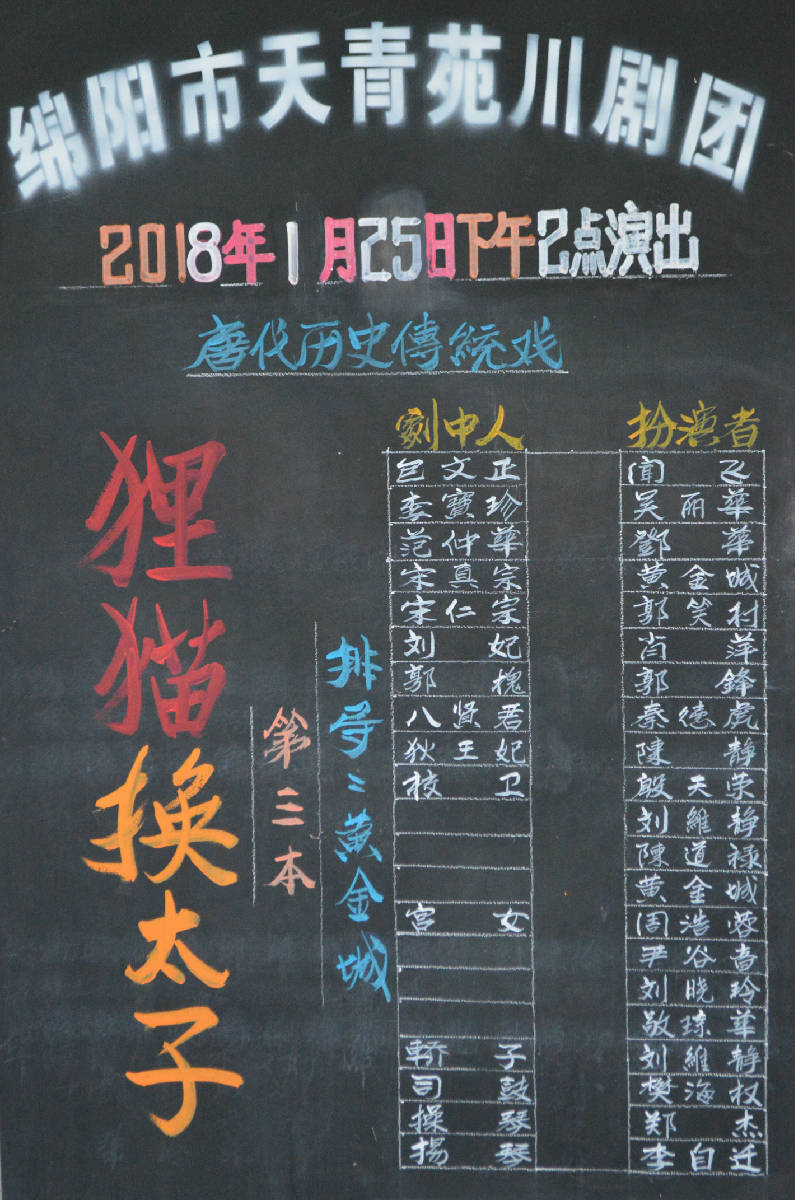 绵阳市天青苑川剧团
2018年1月25日下午2点演出
唐代历史傳統戏
狸猫换太子
第三本
排导:黄金城
劇中人 扮演者
包文正 闻飞
李寶珍 吴丽華
范仲華 鄧華
宋真宗 黄金城
宋仁宗 郭笑村
刘妃 肖萍
郭槐 郭鋒
八贤君 秦德虎
狄王妃 陳静
校卫 殷天荣
刘維静
陳道禄
黄金城
宫女 周浩蓉
尹谷香
刘晓玲
敬琼華
轎子 刘維静
司鼓 樊海权
操琴 郑杰
揚琴 李自迁